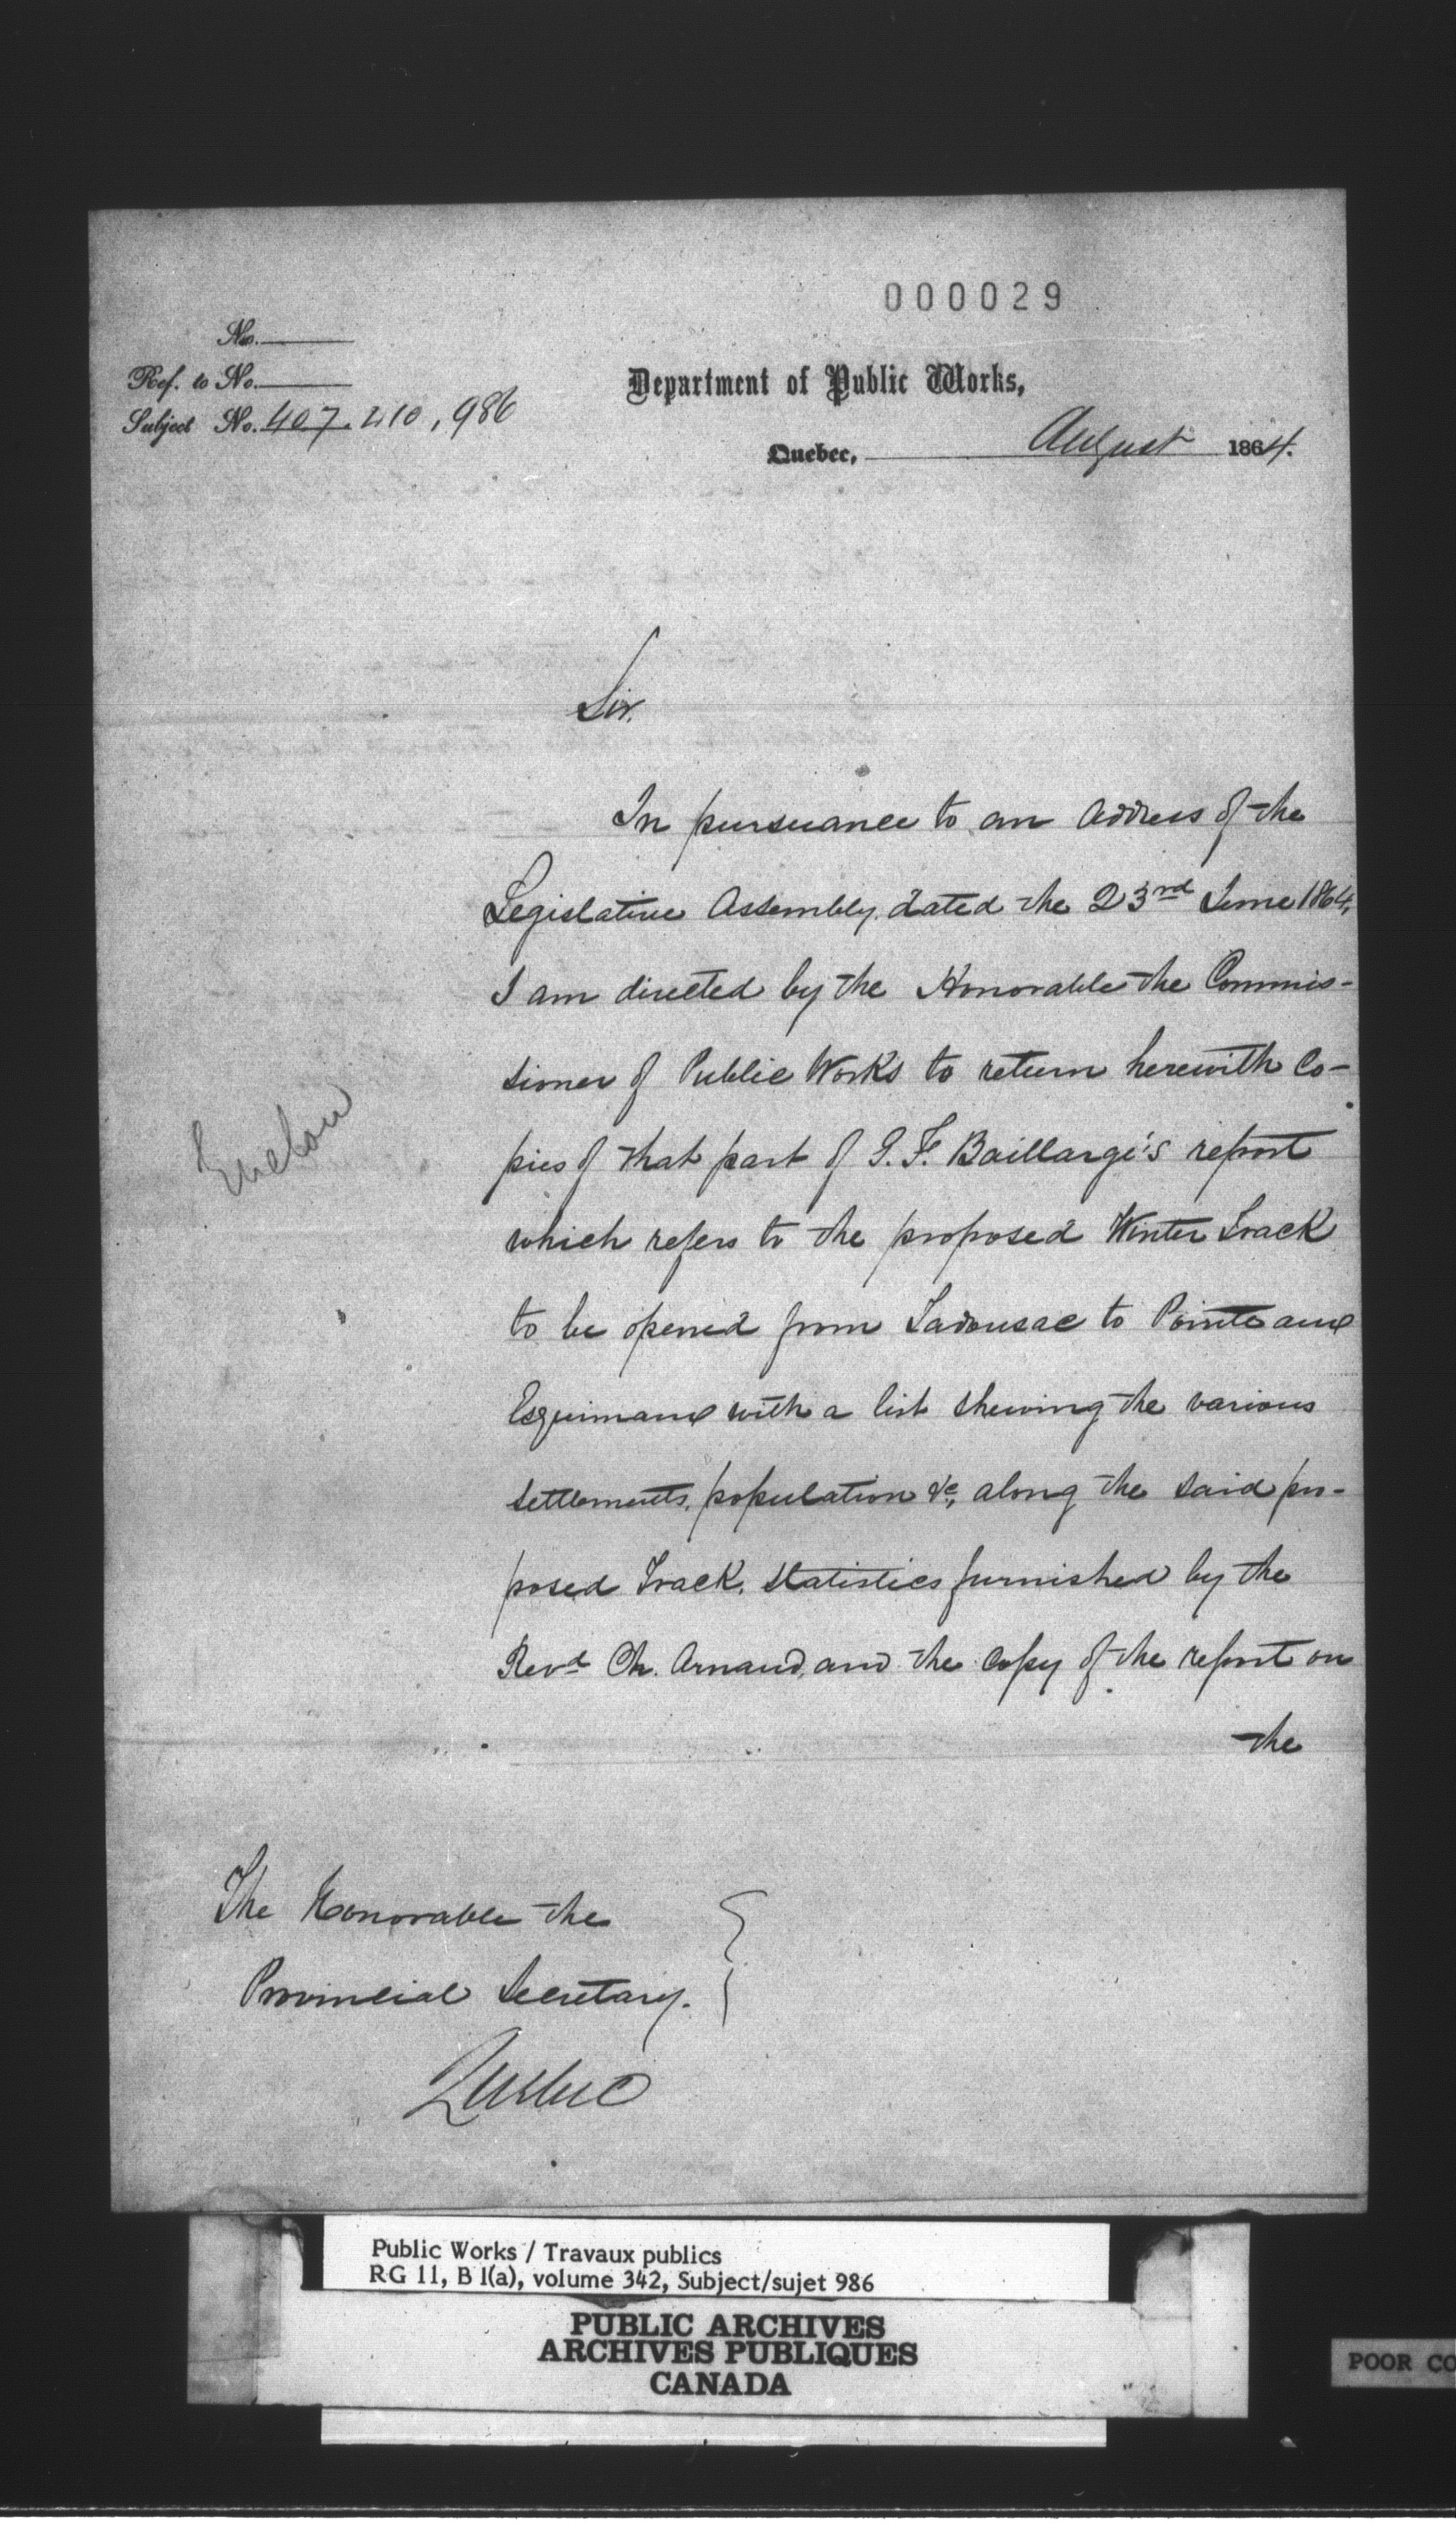 000029
No.
Ref. to No.
Subject No. 407. 410, 986
Department of Public Works,
Quebec, August 1864.
Sir.
In pursuance to an address of the
Legislative Assembly, dated the 23rd June 1864,
I am directed by the Honorable the Commis-
sioner of Public Works to return herewith Co-
pies of that part of G. F. Baillargé's report
which refers to the proposed Winter Track
to be opened from Tadousac to Pointe aux
Esquimaux with a list shewing the various
settlements, population &c, along the said pro-
posed Track. Statistics furnished by the
Revd Ch. Arnaud, and the Copy of the report on
the
The Honorable the
Provincial Secretary.
Quebec
Public Works / Travaux publics
RG 11, B 1(a), volume 342, Subject/sujet 986
PUBLIC ARCHIVES
ARCHIVES PUBLIQUES
CANADA
POOR CO